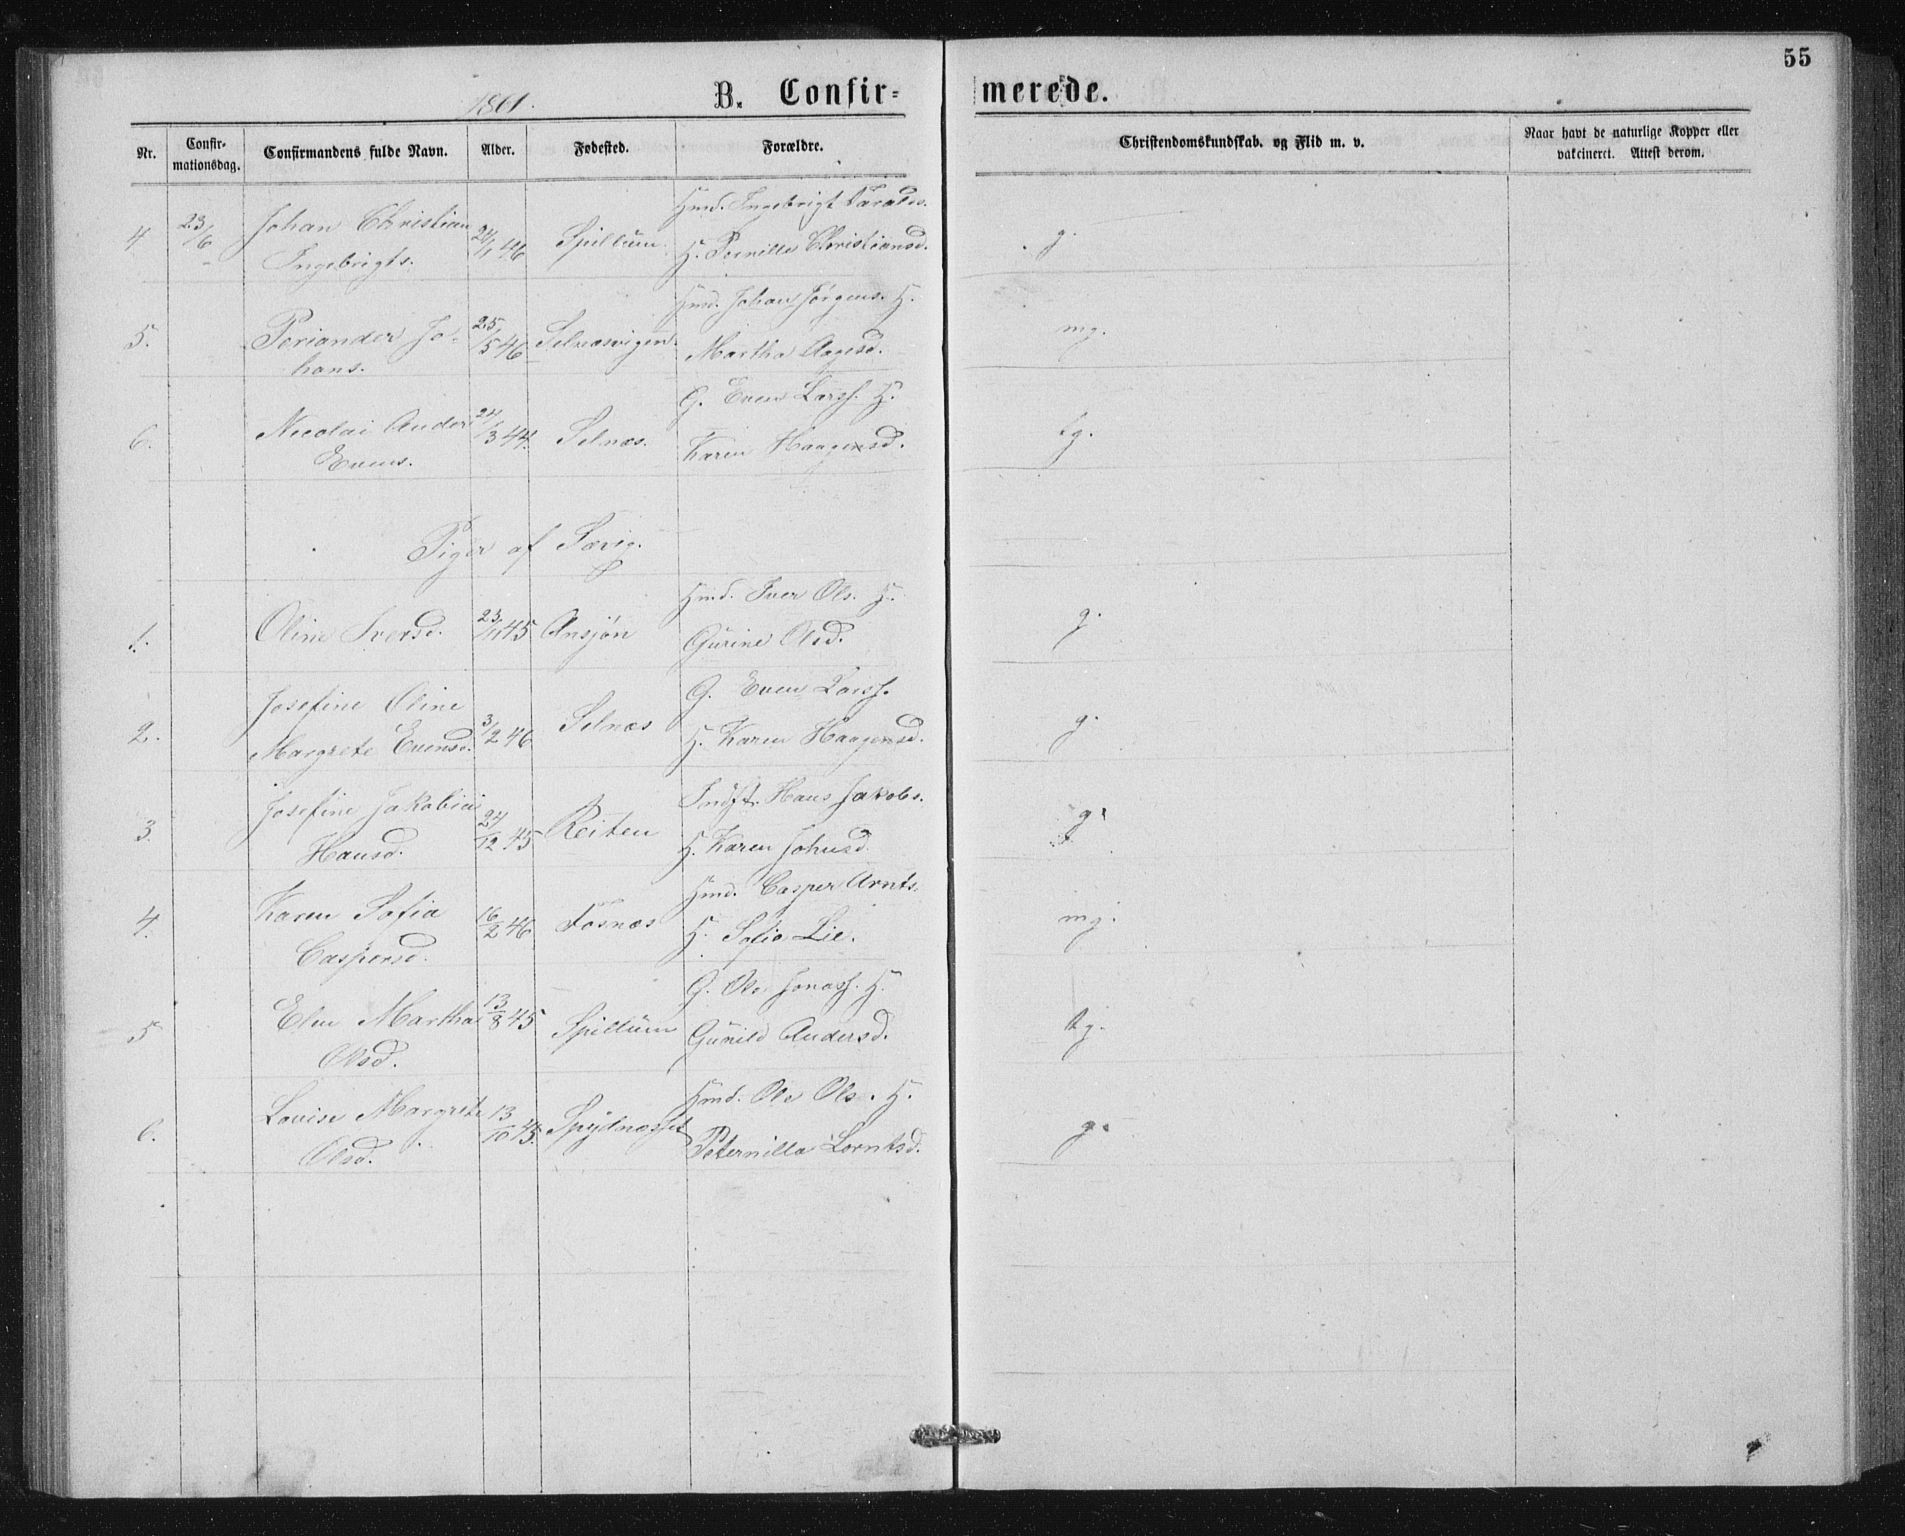 55
1861.
B. Confir-
merede.
Nr.
Confir-
mationsdag.
Confirmandens fulde Navn.
Alder.
Fødested.
Forældre.
Christendomskundskab, og Flid m. v.
Naar havt de naturlige Kopper eller
vakcineret. Attest derom.
Hmd. Ingebrigt Taralds.
4 23/6 Johan Christian 24/1 46 Spillum H. Pernille Christiansd. g.
Ingebrigts.
Hmd. Johan Jørgens. H.
5. Periander Jo- 25/5 46 Selnæsvigen Martha Aagesd. mg.
hans.
G. Even Larss. H.
6. Nicolai Ander 24/3 44. Selnæs. Karen Haagensd. tg.
Evens.
Piger af Særig.
Hmd. Iver Ols. H.
1. Oline Iversd. 23/11 45 Ansjøn Gurine Olsd. g.
Josefine Oline G. Even Larss.
2. Margrete Evensd. 3/2 46 Selnæs H. Karen Haagensd. g.
Josefine Jakobine Indst. Hans Jakobs.
3. Hansd. 24/12 45 Reiten H. Karen Johnsd. g.
Karen Sofia Hmd. Casper Arnts.
4. Caspersd. 16/2 46 Fosnæs H. Sofia Lie. mg.
G. Ole Jonass. H.
5 Elen Martha 13/8 45 Spillum Gunild Andersd. tg.
Olsd.
Lovise Margrete Hmd. Ole Ols. H.
6. Olsd. 13/10 45. Spydnæsset Peternilla Lorntsd. g.